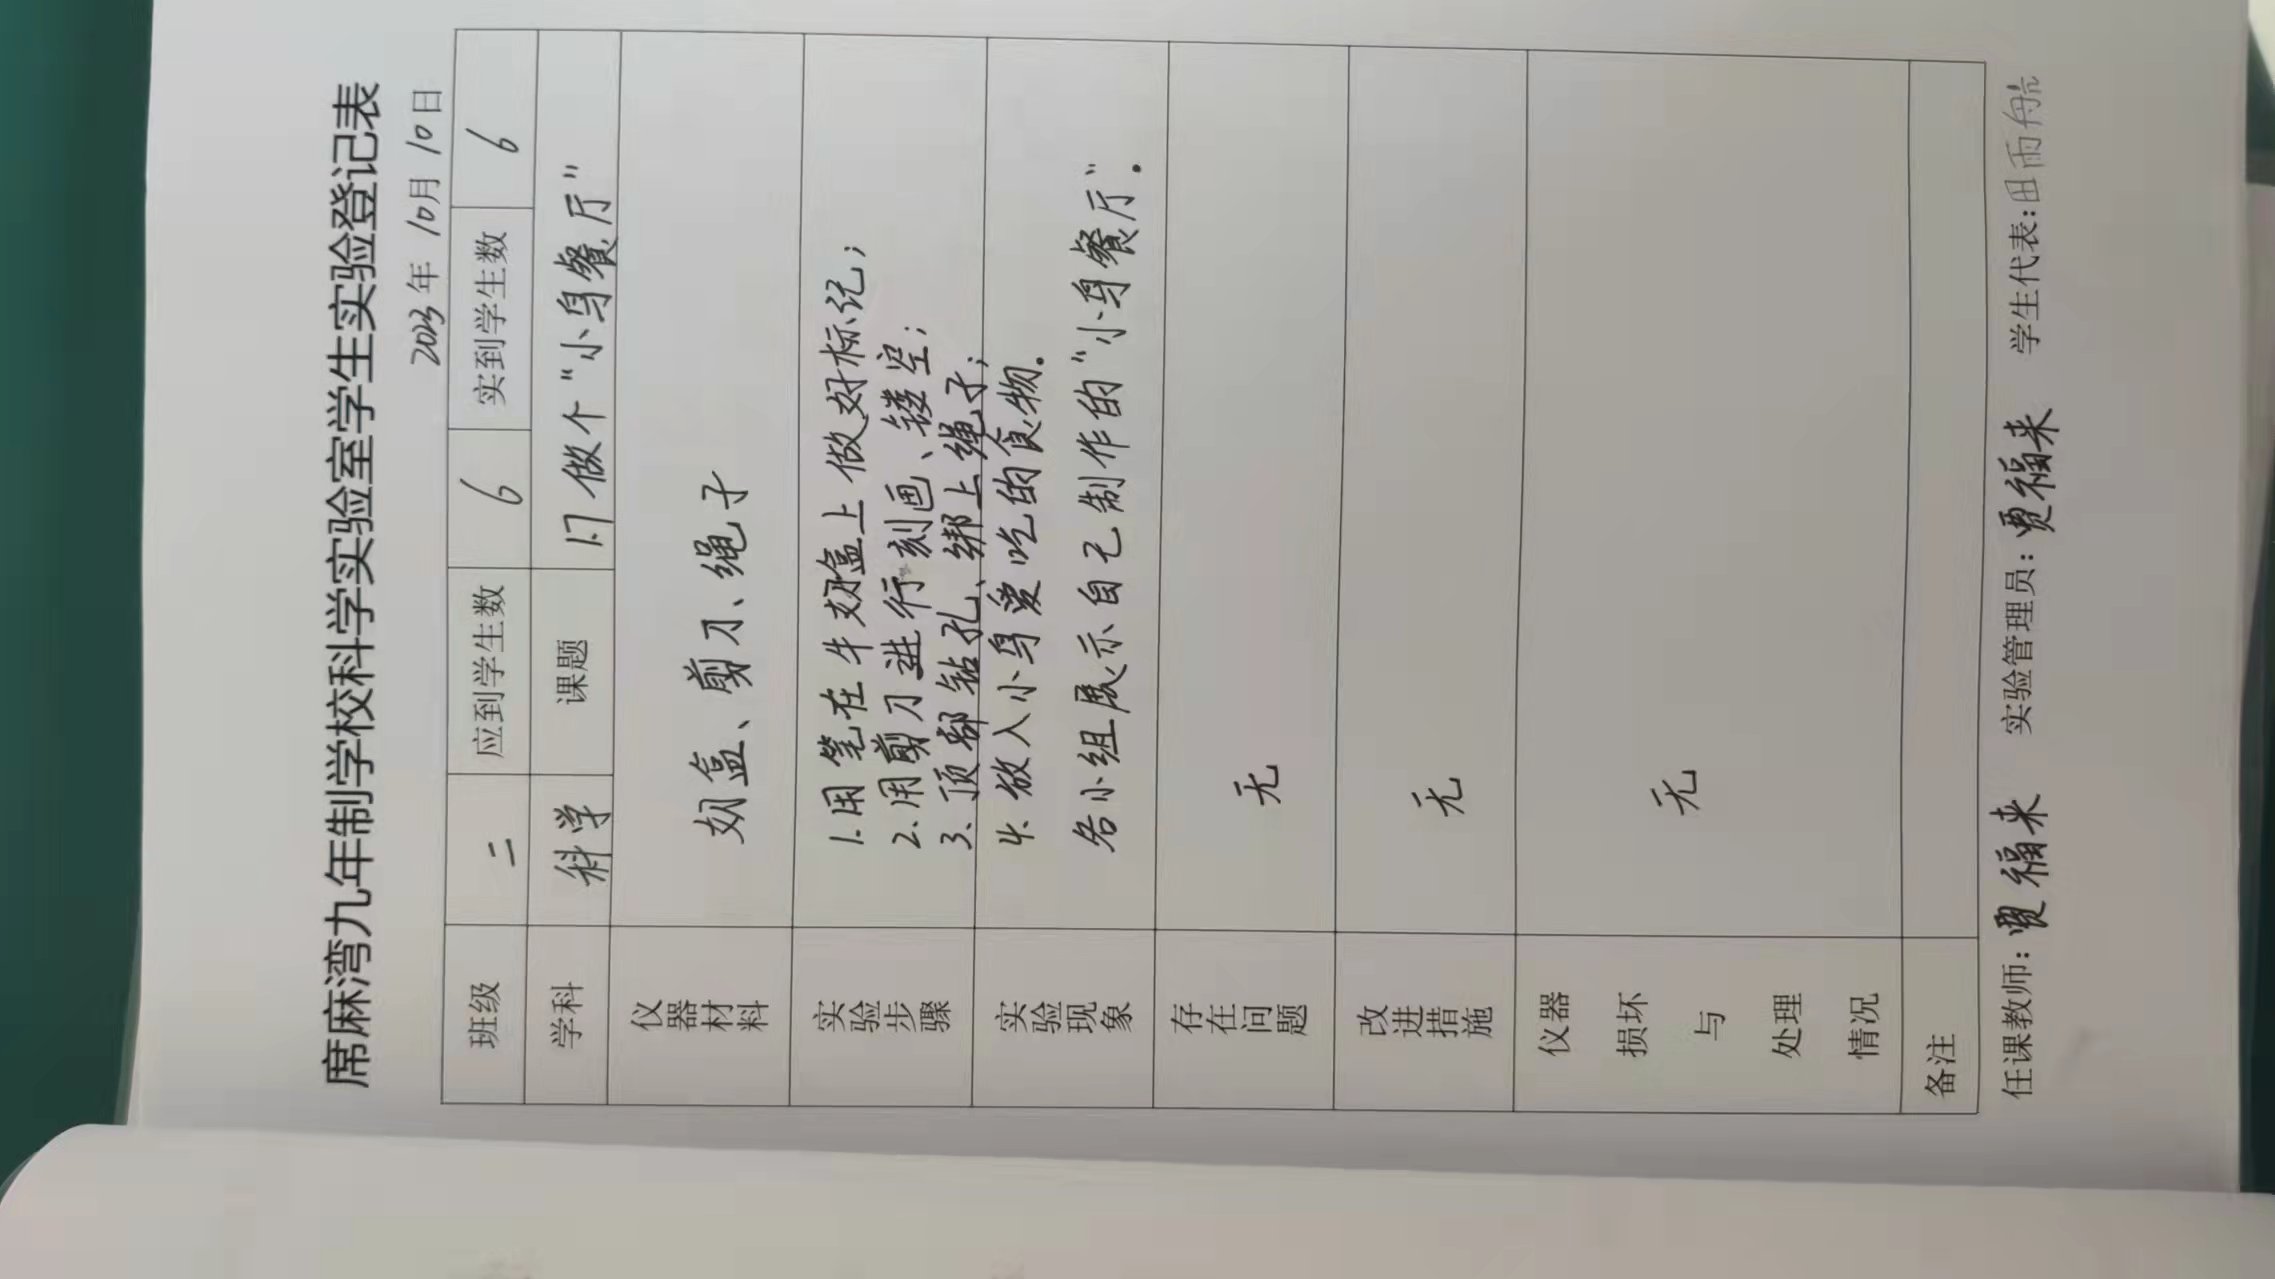 席麻湾九年制学校科学实验室学生实验登记表
2023年 10月 10日
班级 二 应到学生数 6 实到学生数 6
学科 科学 课题 1.7 做个“小鸟餐厅”
仪器材料 奶盒、剪刀、绳子
实验步骤 1.用笔在牛奶盒上做好标记；
2.用剪刀进行刻画、镂空；
3.顶部钻孔、绑上绳子；
4.放入小鸟爱吃的食物.
实验现象 各小组展示自己制作的“小鸟餐厅”.
存在问题 无
改进措施 无
仪器损坏与处理情况 无
备注
任课教师：贾福来 实验管理员：贾福来 学生代表：田雨航